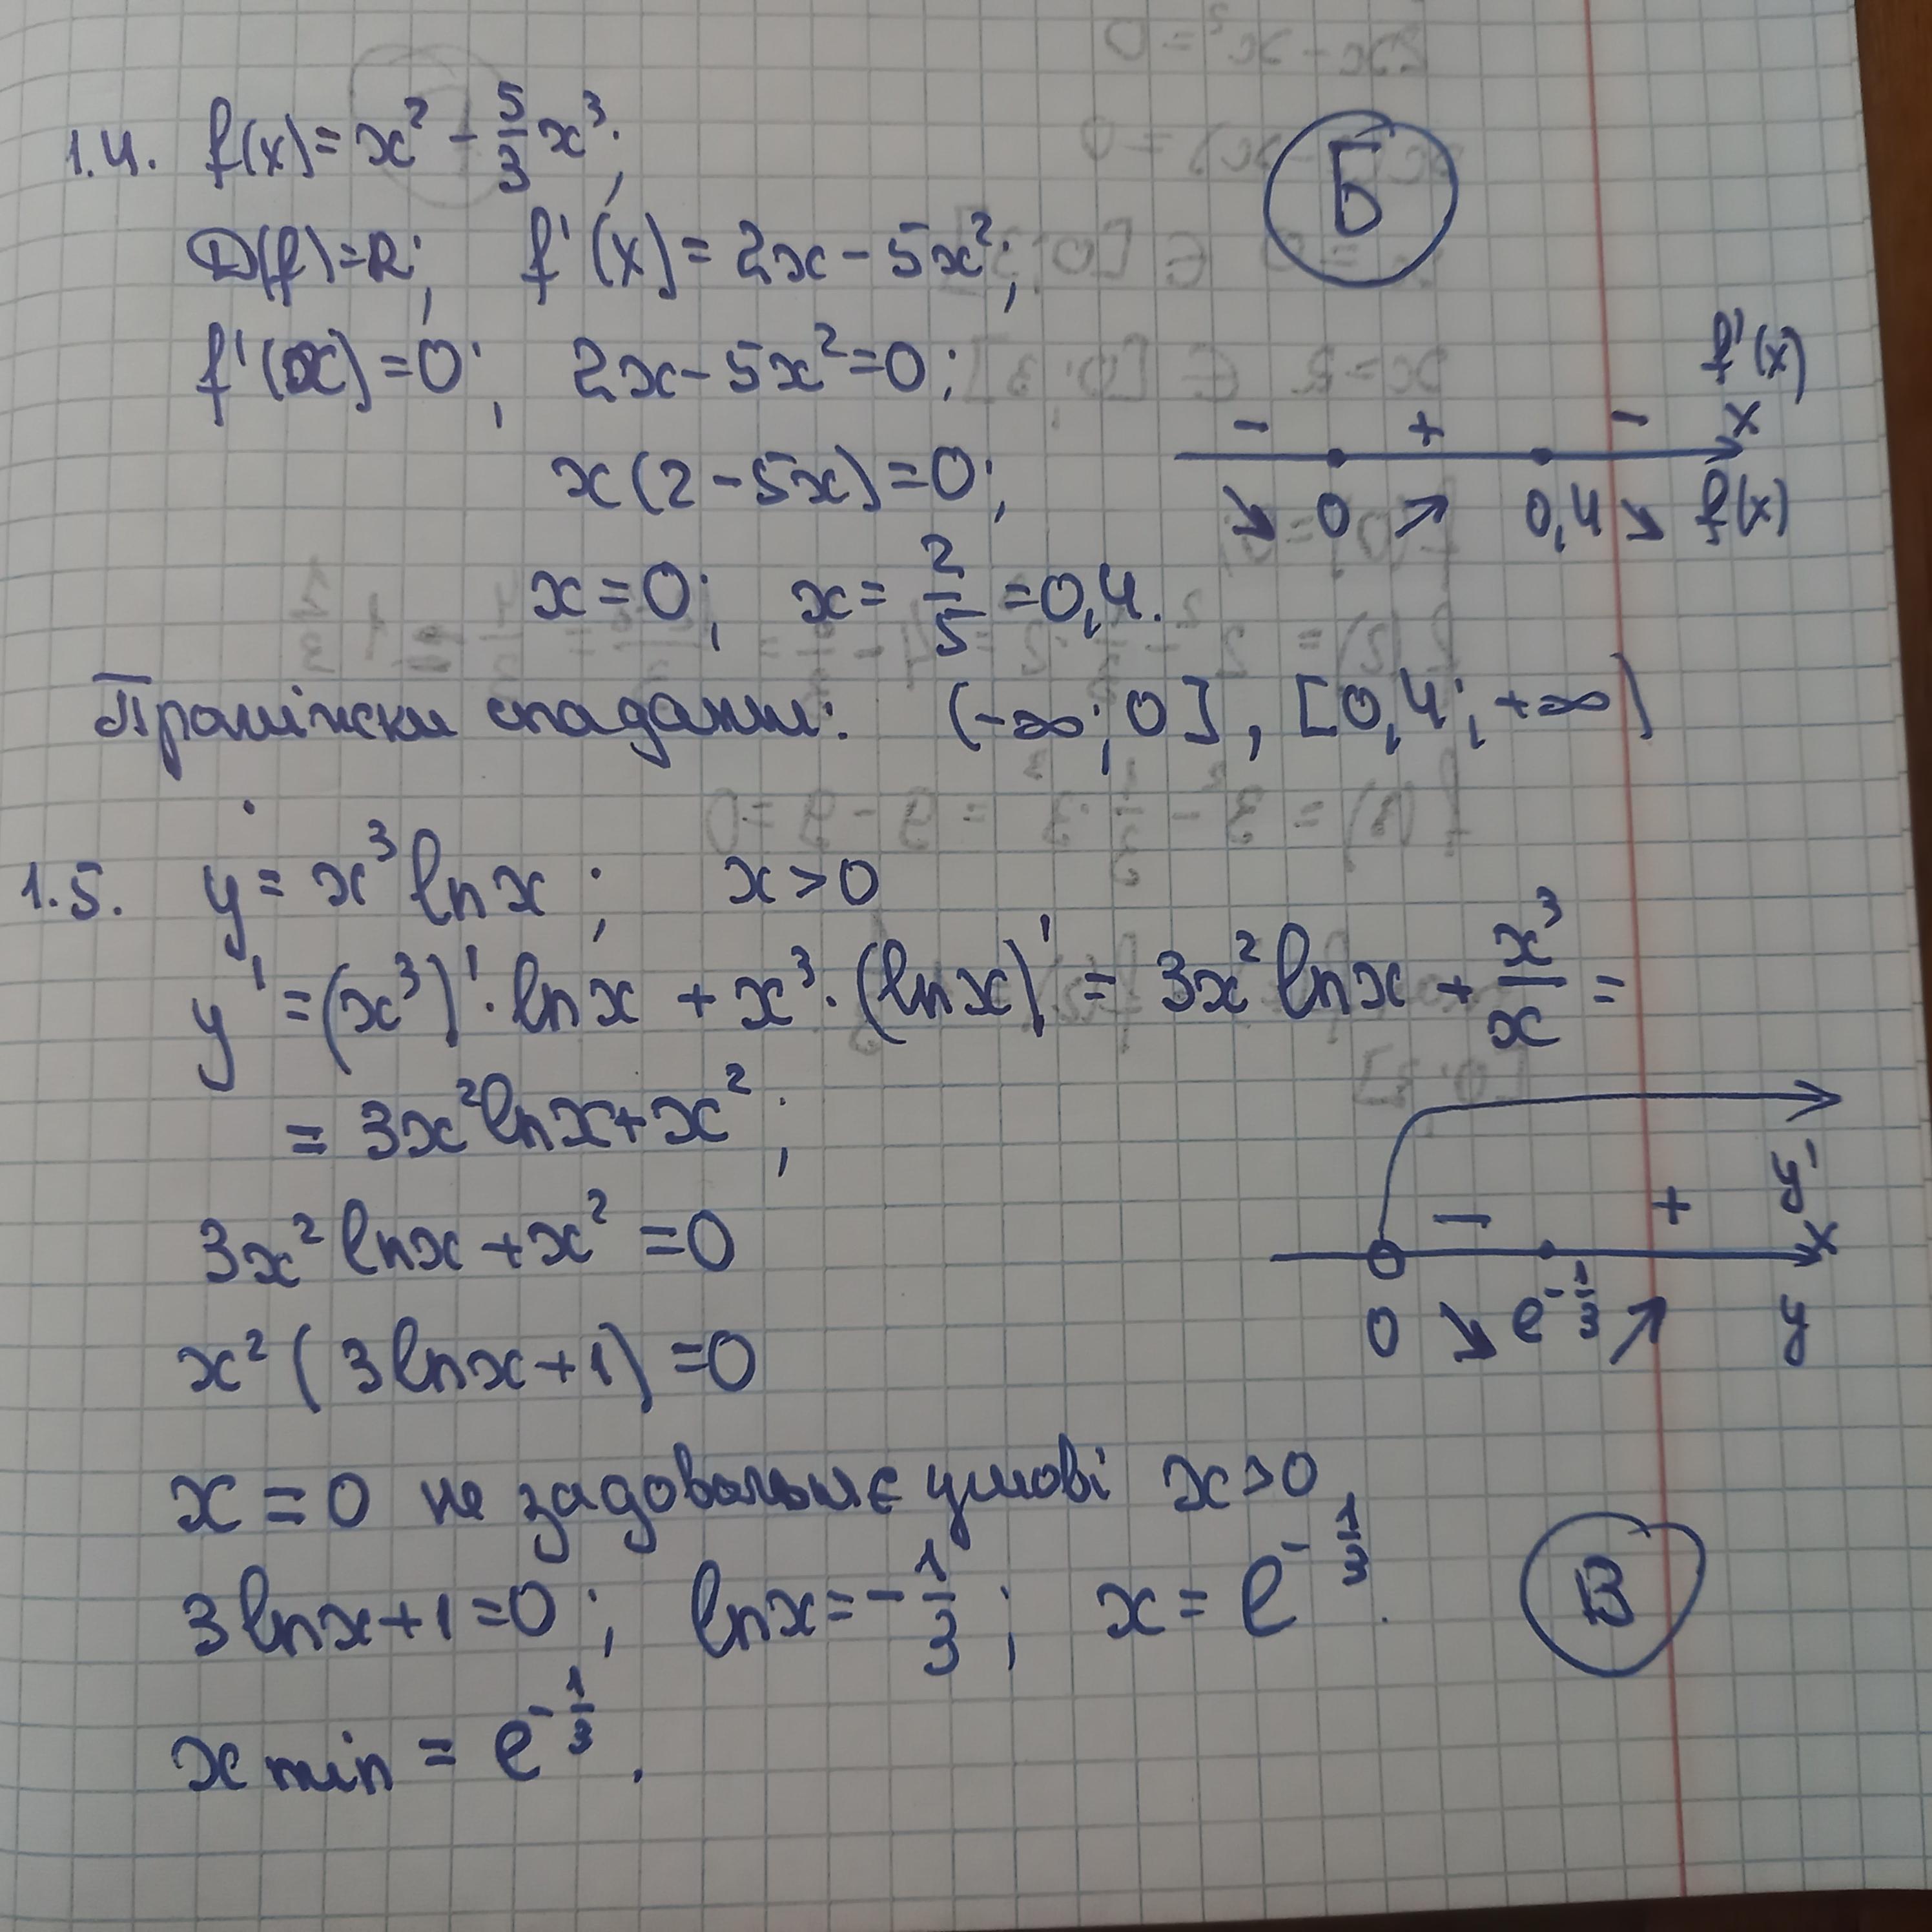 1.4. f(x) = x² - 5/3 x³;
Б
D(f) = R; f'(x) = 2x - 5x²;
f'(x) = 0; 2x - 5x² = 0;
f'(x)
- + - x
x(2 - 5x) = 0;
↘ 0 ↗ 0,4 ↘ f(x)
x = 0; x = 2/5 = 0,4.
Проміжки спадання: (-∞; 0], [0,4; +∞)
1.5. y = x³ ln x; x > 0
y' = (x³)' · ln x + x³ · (ln x)' = 3x² ln x + x³/x =
= 3x² ln x + x²;
y'
- + x
3x² ln x + x² = 0
0 ↘ e^(-1/3) ↗ y
x² (3 ln x + 1) = 0
x = 0 не задовольняє умові x > 0
3 ln x + 1 = 0; ln x = -1/3; x = e^(-1/3).
В
x min = e^(-1/3).